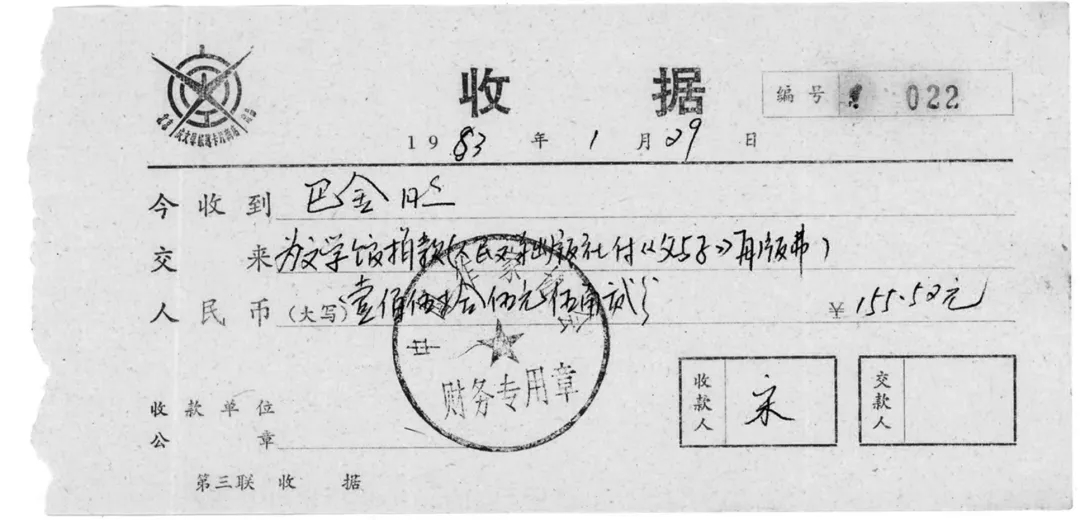 收据
编号 022
1983年1月29日
今收到 巴金同志
交来 为文学馆捐款(人民文学出版社付《父与子》再版费)
人民币(大写) 壹佰伍拾伍元伍角贰分 ¥155.52元
中国作家协会
财务专用章
收款人 宋
交款人
收款单位
公章
第三联 收据